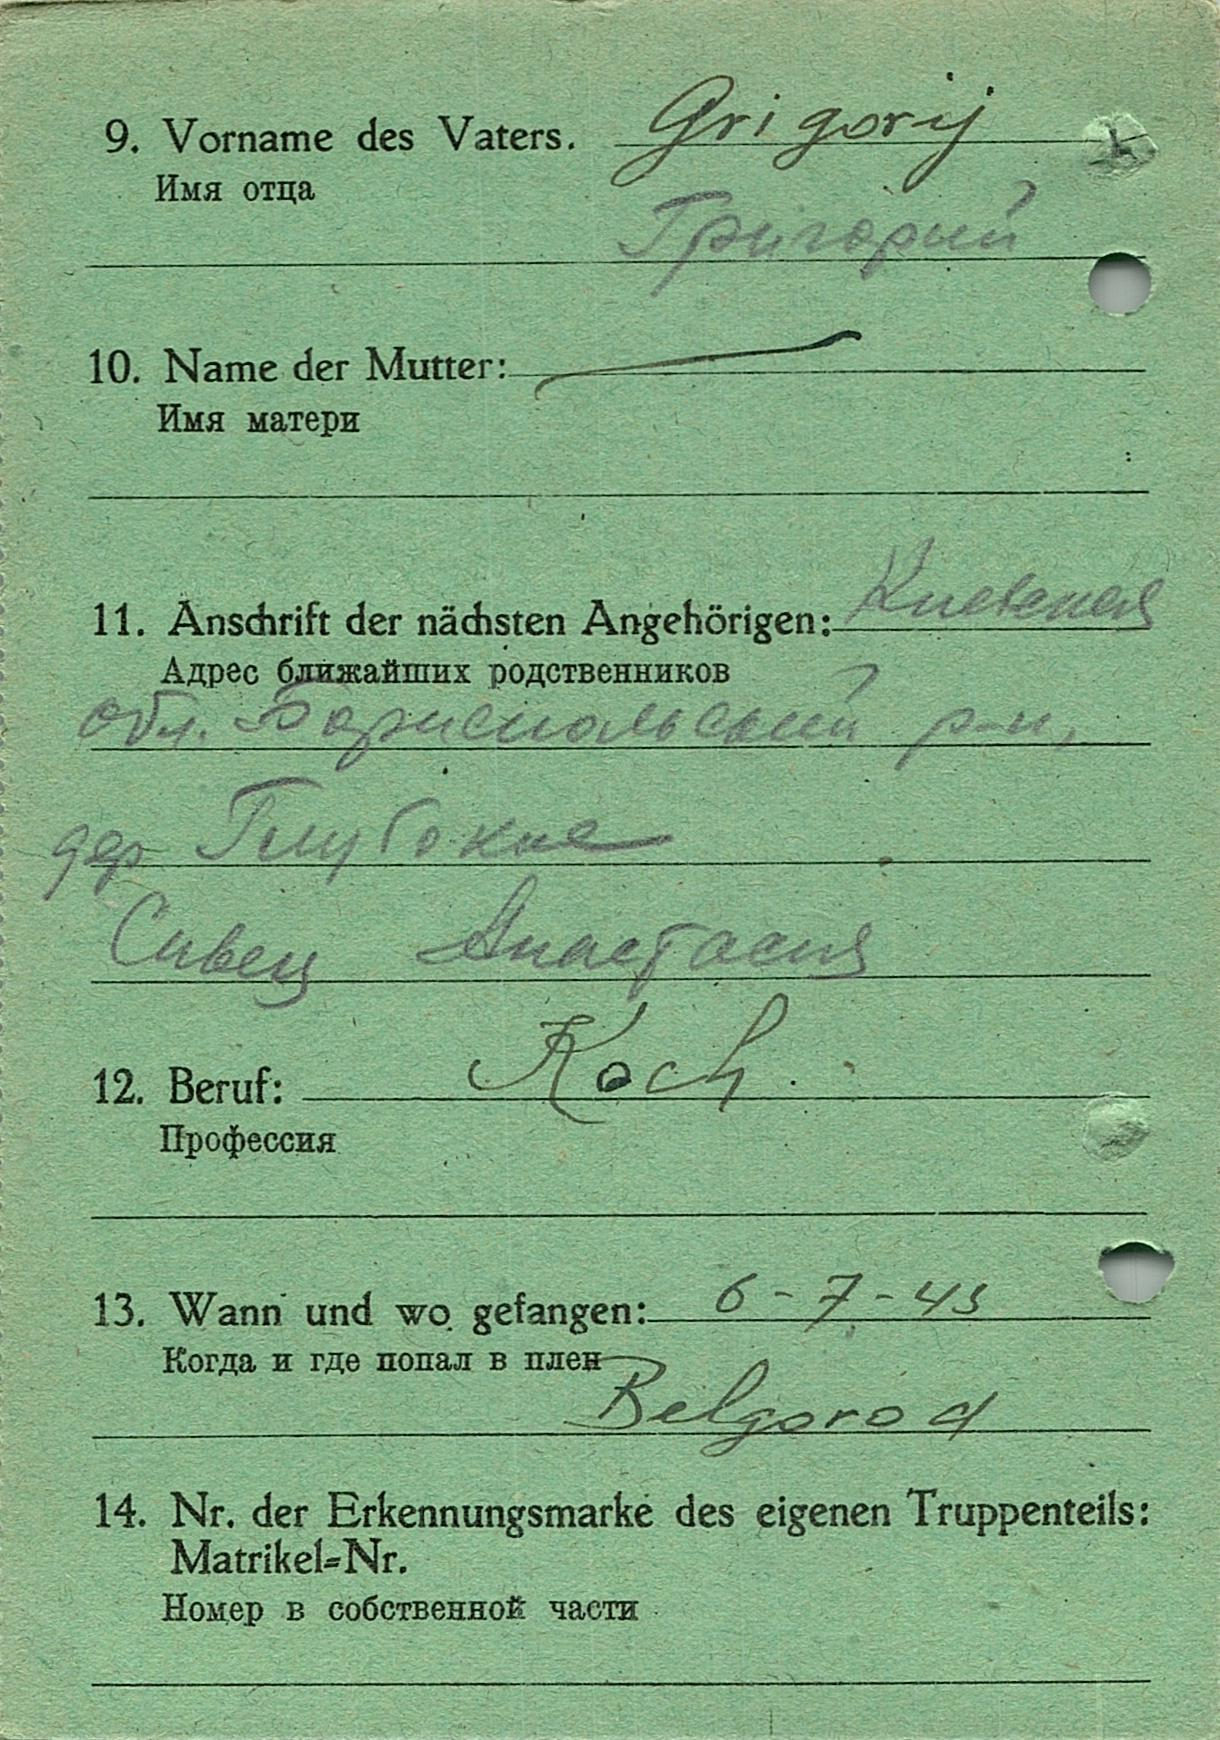 9. Vorname des Vaters. Grigorij
Имя отца
Григорий
10. Name der Mutter:
Имя матери
11. Anschrift der nächsten Angehörigen: Киевская
Адрес ближайших родственников
обл. Бориспольский р-н,
дер Глубокие
Сивец Анастасия
12. Beruf: Koch.
Профессия
13. Wann und wo gefangen: 6-7-43
Когда и где попал в плен
Belgorod
14. Nr. der Erkennungsmarke des eigenen Truppenteils:
Matrikel-Nr.
Номер в собственной части